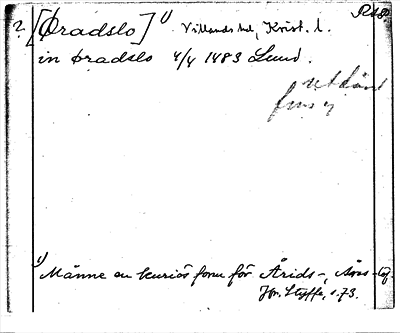 ? [Øradslo] 1) Villands hd, Krist. l.
in øradslo 4/4 1483 Lund.
utlånt
finns ej
1) Månne en kuriös form för Årids-, Åns-
Jfr. Styffe, s. 73.